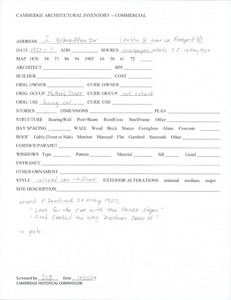 CAMBRIDGE ARCHITECTURAL INVENTORY - COMMERCIAL
ADDRESS 1 Bishop Allen Dr
DATE 1927 ADD SOURCE newspaper article
MAP 1830 54 73 84 94 1903 16 30 61 72
ARCHITECT BP#
BUILDER COST
ORIG. OWNER CURR. OWNER
ORIG. OCCUP Mother's Diner CURR. OCCUP. not extant
ORIG. USE dining car CURR. USE
STORIES DIMENSIONS PLAN
STRUCTURE BearingWall Post+Beam ReinfConc SteelFrame Other
BAY SPACING WALL Wood Brick Stucco Corrugion Alum. Concrete
ROOF Gable (Front or Side) Monitor Mansard Flat Gambrel Sawtooth Other
CORNICE/PARAPET
WINDOWS Type Pattern Material Lintel Sill
ENTRANCE
OTHER ORNAMENT
STYLE EXTERIOR ALTERATIONS minimal medium major
SITE DESCRIPTION
"Look for the car with the steps"
"Food Cooked the way Mother Does it"
no photo
Surveyed by Date
CAMBRIDGE HISTORICAL COMMISSION